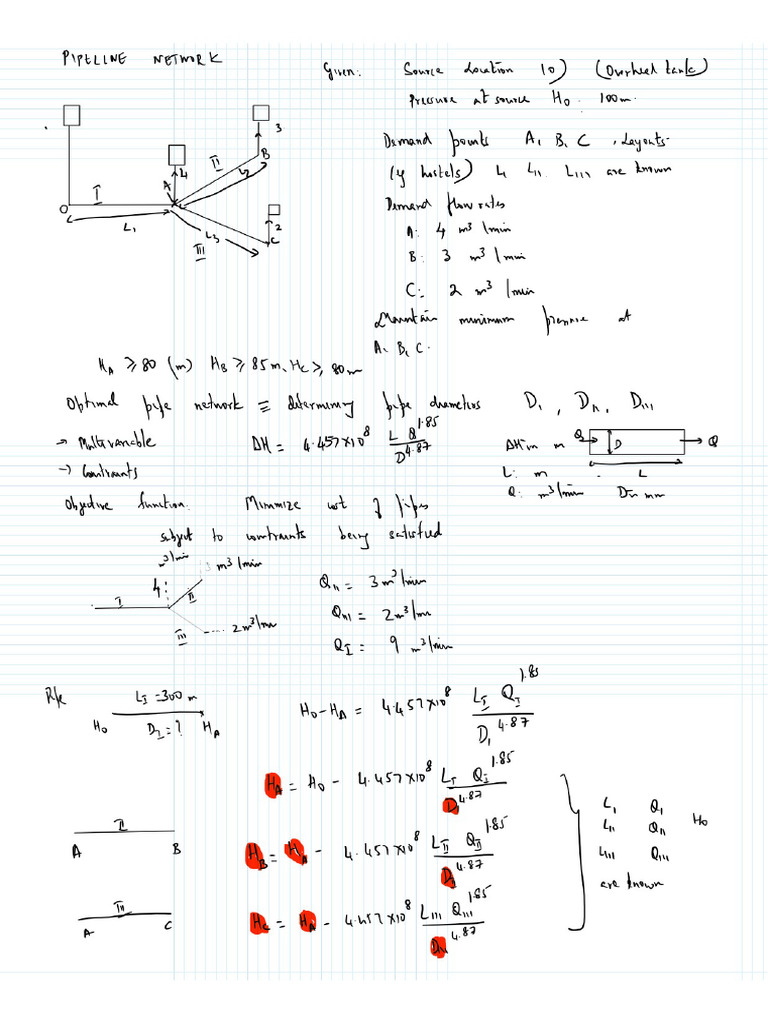 PIPELINE NETWORK
Given: Source location (O) (Overhead tank)
Pressure at source H₀ 100m.
Demand points A, B, C, Layouts
(y hostels) L L_II L_III are known
Demand flow rates
A: 4 m³/min
B: 3 m³/min
C: 2 m³/min
Maintain minimum pressure at
A, B, C.
O
I
L₁
A
4
II
L₂
B
3
L₃
III
C
2
H_A ≥ 80 (m) H_B ≥ 85 m, H_C ≥ 80m
Optimal pipe network ≡ determining pipe diameters D_I, D_II, D_III
→ Multivariable
→ Contraints
ΔH = 4.457×10⁸ L Q^1.85 / D^4.87
ΔH in m Q D Q
L: m L
Q: m³/min D in mm
Objective function: Minimize cost of pipes
subject to contraints being satisfied
m³/min
3 m³/min
4
I
II
III
2 m³/min
Q_II = 3 m³/min
Q_III = 2 m³/min
Q_I = 9 m³/min
Pipe
L_I = 300 m
H₀ D_I = ? H_A
H₀ - H_A = 4.457×10⁸ L_I Q_I^1.85 / D_I^4.87
H_A = H₀ - 4.457×10⁸ L_I Q_I^1.85 / D_I^4.87
II
A B
H_B = H_A - 4.457×10⁸ L_II Q_II^1.85 / D_II^4.87
III
A C
H_C = H_A - 4.457×10⁸ L_III Q_III^1.85 / D_III^4.87
L_I Q_I
L_II Q_II H₀
L_III Q_III
are known